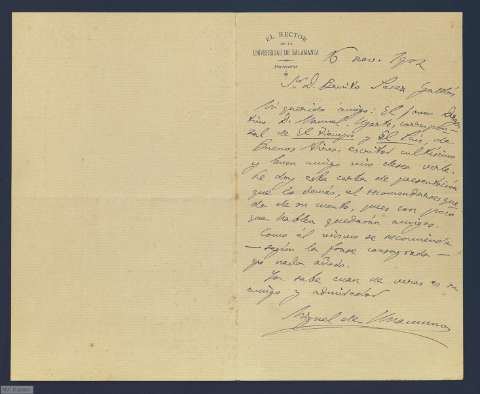 EL RECTOR
DE LA
UNIVERSIDAD DE SALAMANCA
16 nov. 1902
Sr. D. Benito Perez Galdós
Mi querido amigo: El joven
D. Manuel Ugarte,
sal de El Tiempo y El País, de
Buenos Aires, escritor cultísimo
y buen amigo mío desea verle.
Le doy esta carta de presentación
que lo demás, el recomendarse, que
da de su cuenta, pues con poco
que hablen quedarán amigos.
Como él mismo se recomienda
—según la frase consagrada—
yo nada añado.
Ya sabe cuan de veras es su
amigo y admirador
Miguel de Unamuno